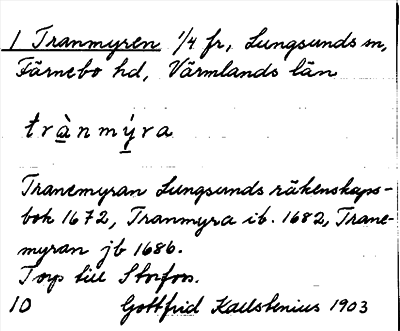 1 Tranmyren 1/4 fr, Lungsunds sn,
Färnebo hd, Värmlands län
trànmýra
Tranemyran Lungsunds räkenskaps-
bok 1672, Tranmyra ib. 1682, Trane-
myran jb 1686.
Torp till Storfors.
10 Gottfrid Kallstenius 1903